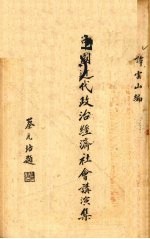 雲山編
國近代政治經濟社會講演集
蔡元培題